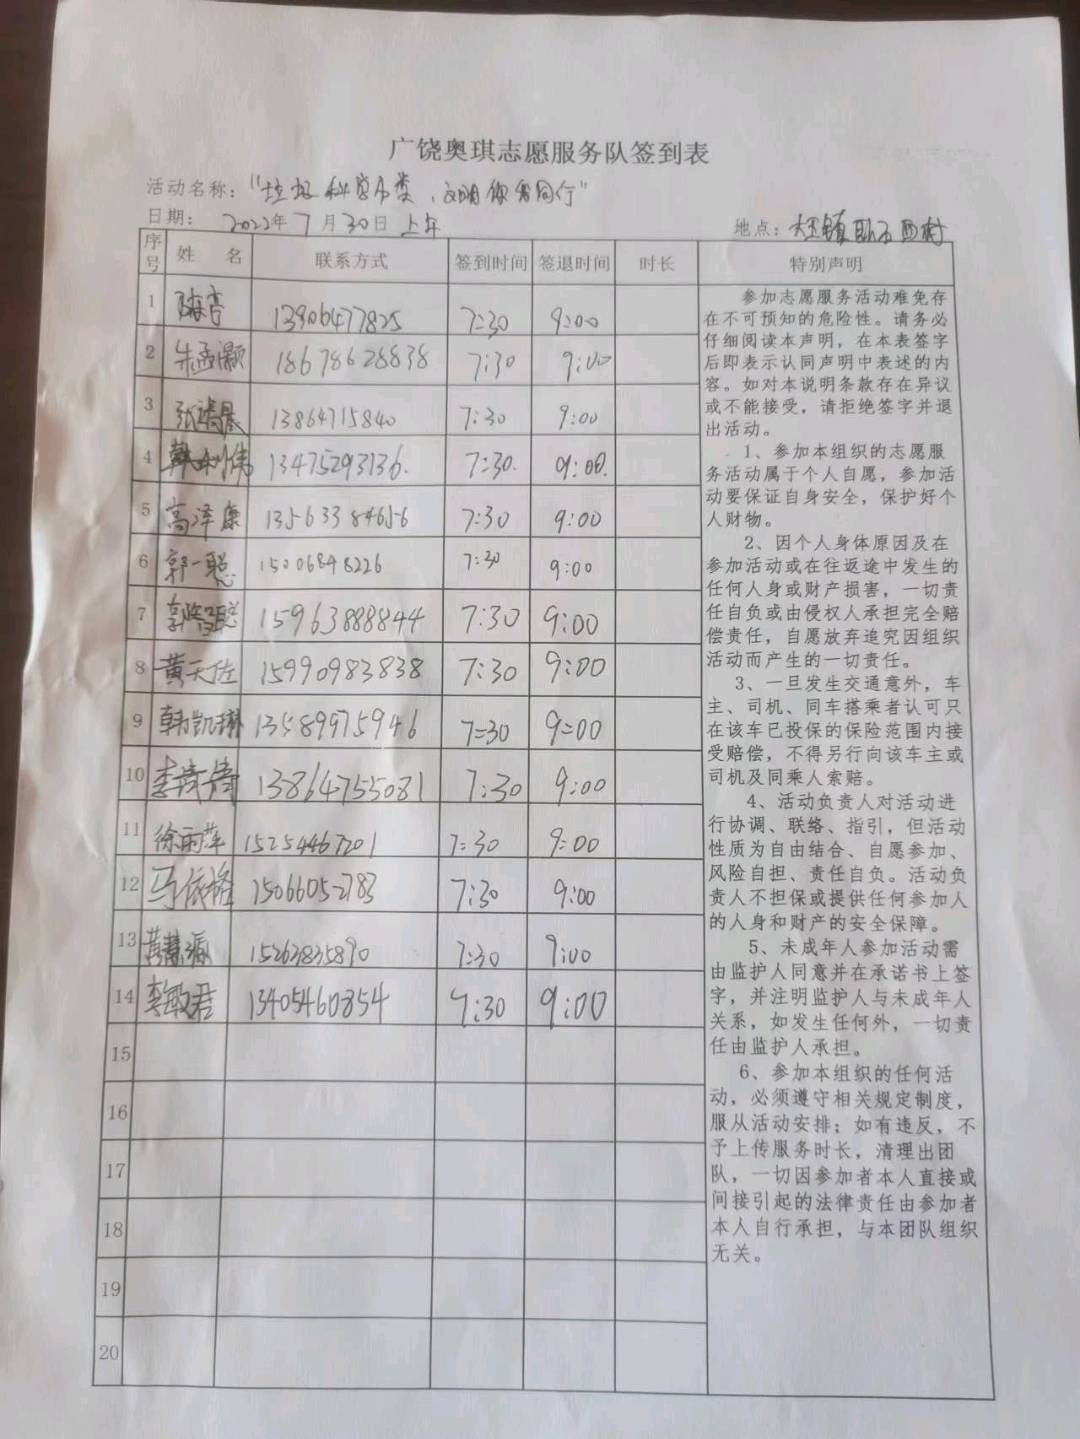 广饶奥琪志愿服务队签到表
活动名称：“垃圾科学分类，文明你我同行”
日期： 2022年7月30日上午 地点：大王镇 西村
序号 姓 名 联系方式 签到时间 签退时间 时长 特别声明
1 陈杏 13906477825 7:30 9:00
2 朱孟灏 18678628838 7:30 9:00
3 张 晨 13864715840 7:30 9:00
4 韩利伟 13475293136. 7:30. 9:00.
5 高泽康 13563384656 7:30 9:00
6 郭一聪 15006848226 7:30 9:00
7 聪 15963888844 7:30 9:00
8 黄天佐 15990983838 7:30 9:00
9 韩凯琳 13589975946 7:30 9:00
10 李 13864755081 7:30 9:00
11 徐雨萍 15254467201 7:30 9:00
12 马依格 15066052783 7:30 9:00
13 15263835890 7:30 9:00
14 李敏君 13405460854 7:30 9:00
15
16
17
18
19
20
参加志愿服务活动难免存
在不可预知的危险性。请务必
仔细阅读本声明，在本表签字
后即表示认同声明中表述的内
容。如对本说明条款存在异议
或不能接受，请拒绝签字并退
出活动。
1、参加本组织的志愿服
务活动属于个人自愿，参加活
动要保证自身安全，保护好个
人财物。
2、因个人身体原因及在
参加活动或在往返途中发生的
任何人身或财产损害，一切责
任自负或由侵权人承担完全赔
偿责任，自愿放弃追究因组织
活动而产生的一切责任。
3、一旦发生交通意外，车
主、司机、同车搭乘者认可只
在该车已投保的保险范围内接
受赔偿，不得另行向该车主或
司机及同乘人索赔。
4、活动负责人对活动进
行协调、联络、指引，但活动
性质为自由结合、自愿参加、
风险自担、责任自负。活动负
责人不担保或提供任何参加人
的人身和财产的安全保障。
5、未成年人参加活动需
由监护人同意并在承诺书上签
字，并注明监护人与未成年人
关系，如发生任何外，一切责
任由监护人承担。
6、参加本组织的任何活
动，必须遵守相关规定制度，
服从活动安排；如有违反，不
予上传服务时长，清理出团
队，一切因参加者本人直接或
间接引起的法律责任由参加者
本人自行承担，与本团队组织
无关。